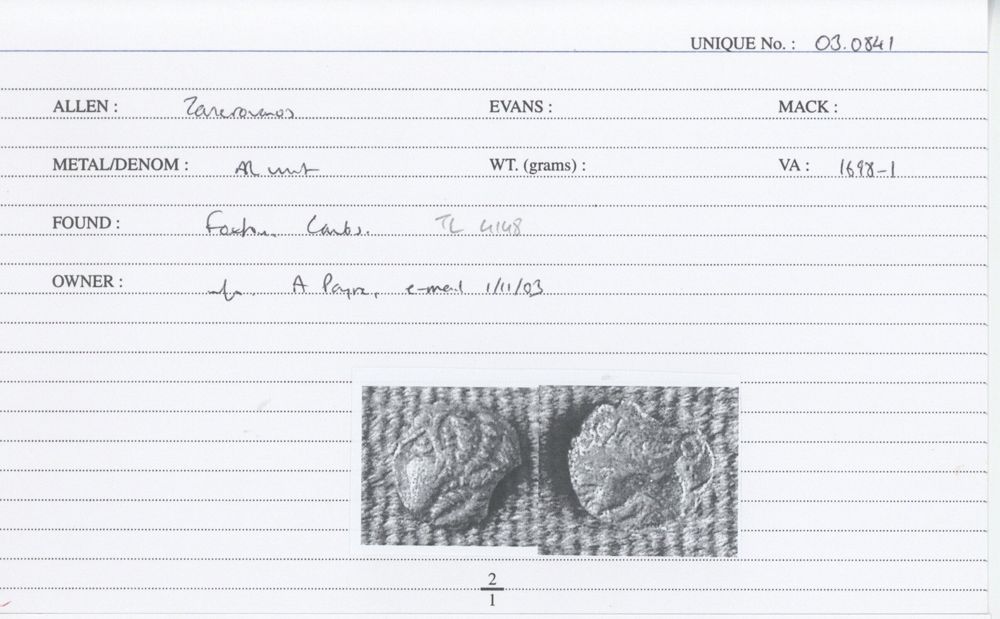 UNIQUE No. : 03.0841
ALLEN : Tasciovanos EVANS : MACK :
METAL/DENOM : AR unit WT. (grams) : VA : 1698-1
FOUND : Foxton, Cambs. TL 4148
OWNER : A Payne, e-mail 1/11/03
2
1